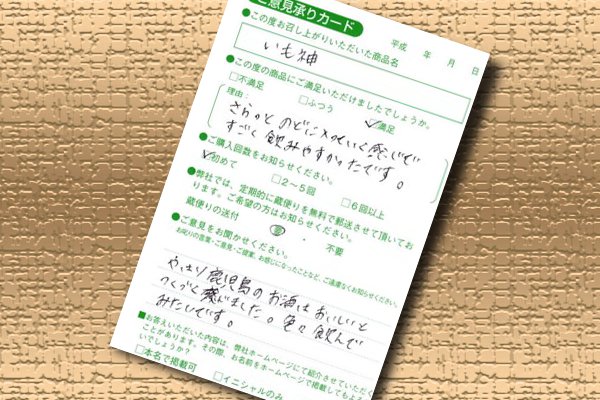 ご意見承りカード
平成 年 月 日
●この度お召し上がりいただいた商品名
いも神
●この度の商品にご満足いただけましたでしょうか。
□不満足 □ふつう ☑満足
理由：
さらっと のどに入っていく感じで
すごく飲みやすかったです。
●ご購入回数をお知らせください。
☑初めて □2～5回 □6回以上
●弊社では、定期的に蔵便りを無料で郵送させて頂いてお
ります。ご希望の方はお知らせください。
蔵便りの送付 要 ・ 不要
●ご意見をお聞かせください。
お叱りの言葉・ご意見・ご提案、お感じになったことなど、ご遠慮なくお知らせください。
やはり鹿児島のお酒はおいしいと
つくづく感じました。色々飲んで
みたいです。
■お答えいただいた内容は、弊社ホームページにて紹介させていただく
ことがあります。その際、お名前をホームページで掲載してもよろ
いでしょうか？
□本名で掲載可 □イニシャルのみ